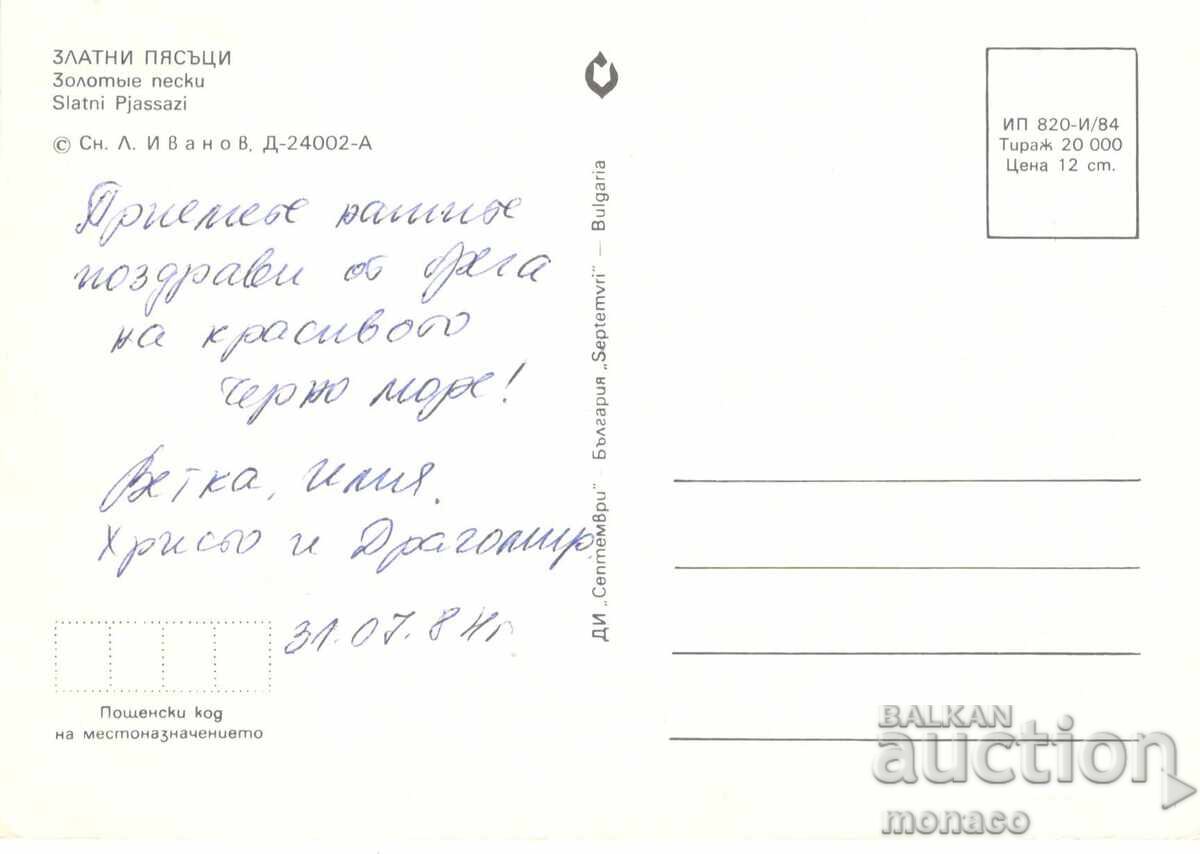 ЗЛАТНИ ПЯСЪЦИ
Золотые пески
Slatni Pjassazi
© Сн. Л. Иванов, Д-24002-А
Приемете нашите
поздрави от брега
на красивото
Черно море!
Ветка, Илия,
Христо и Драгомир
31.07.84г
Пощенски код
на местоназначението
ДИ „Септември" – България „Septemvri" – Bulgaria
ИП 820-И/84
Тираж 20 000
Цена 12 ст.
BALKAN
auction
monaco